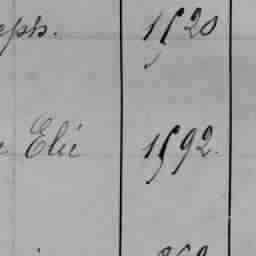 eph. 1520
Elie 1592.